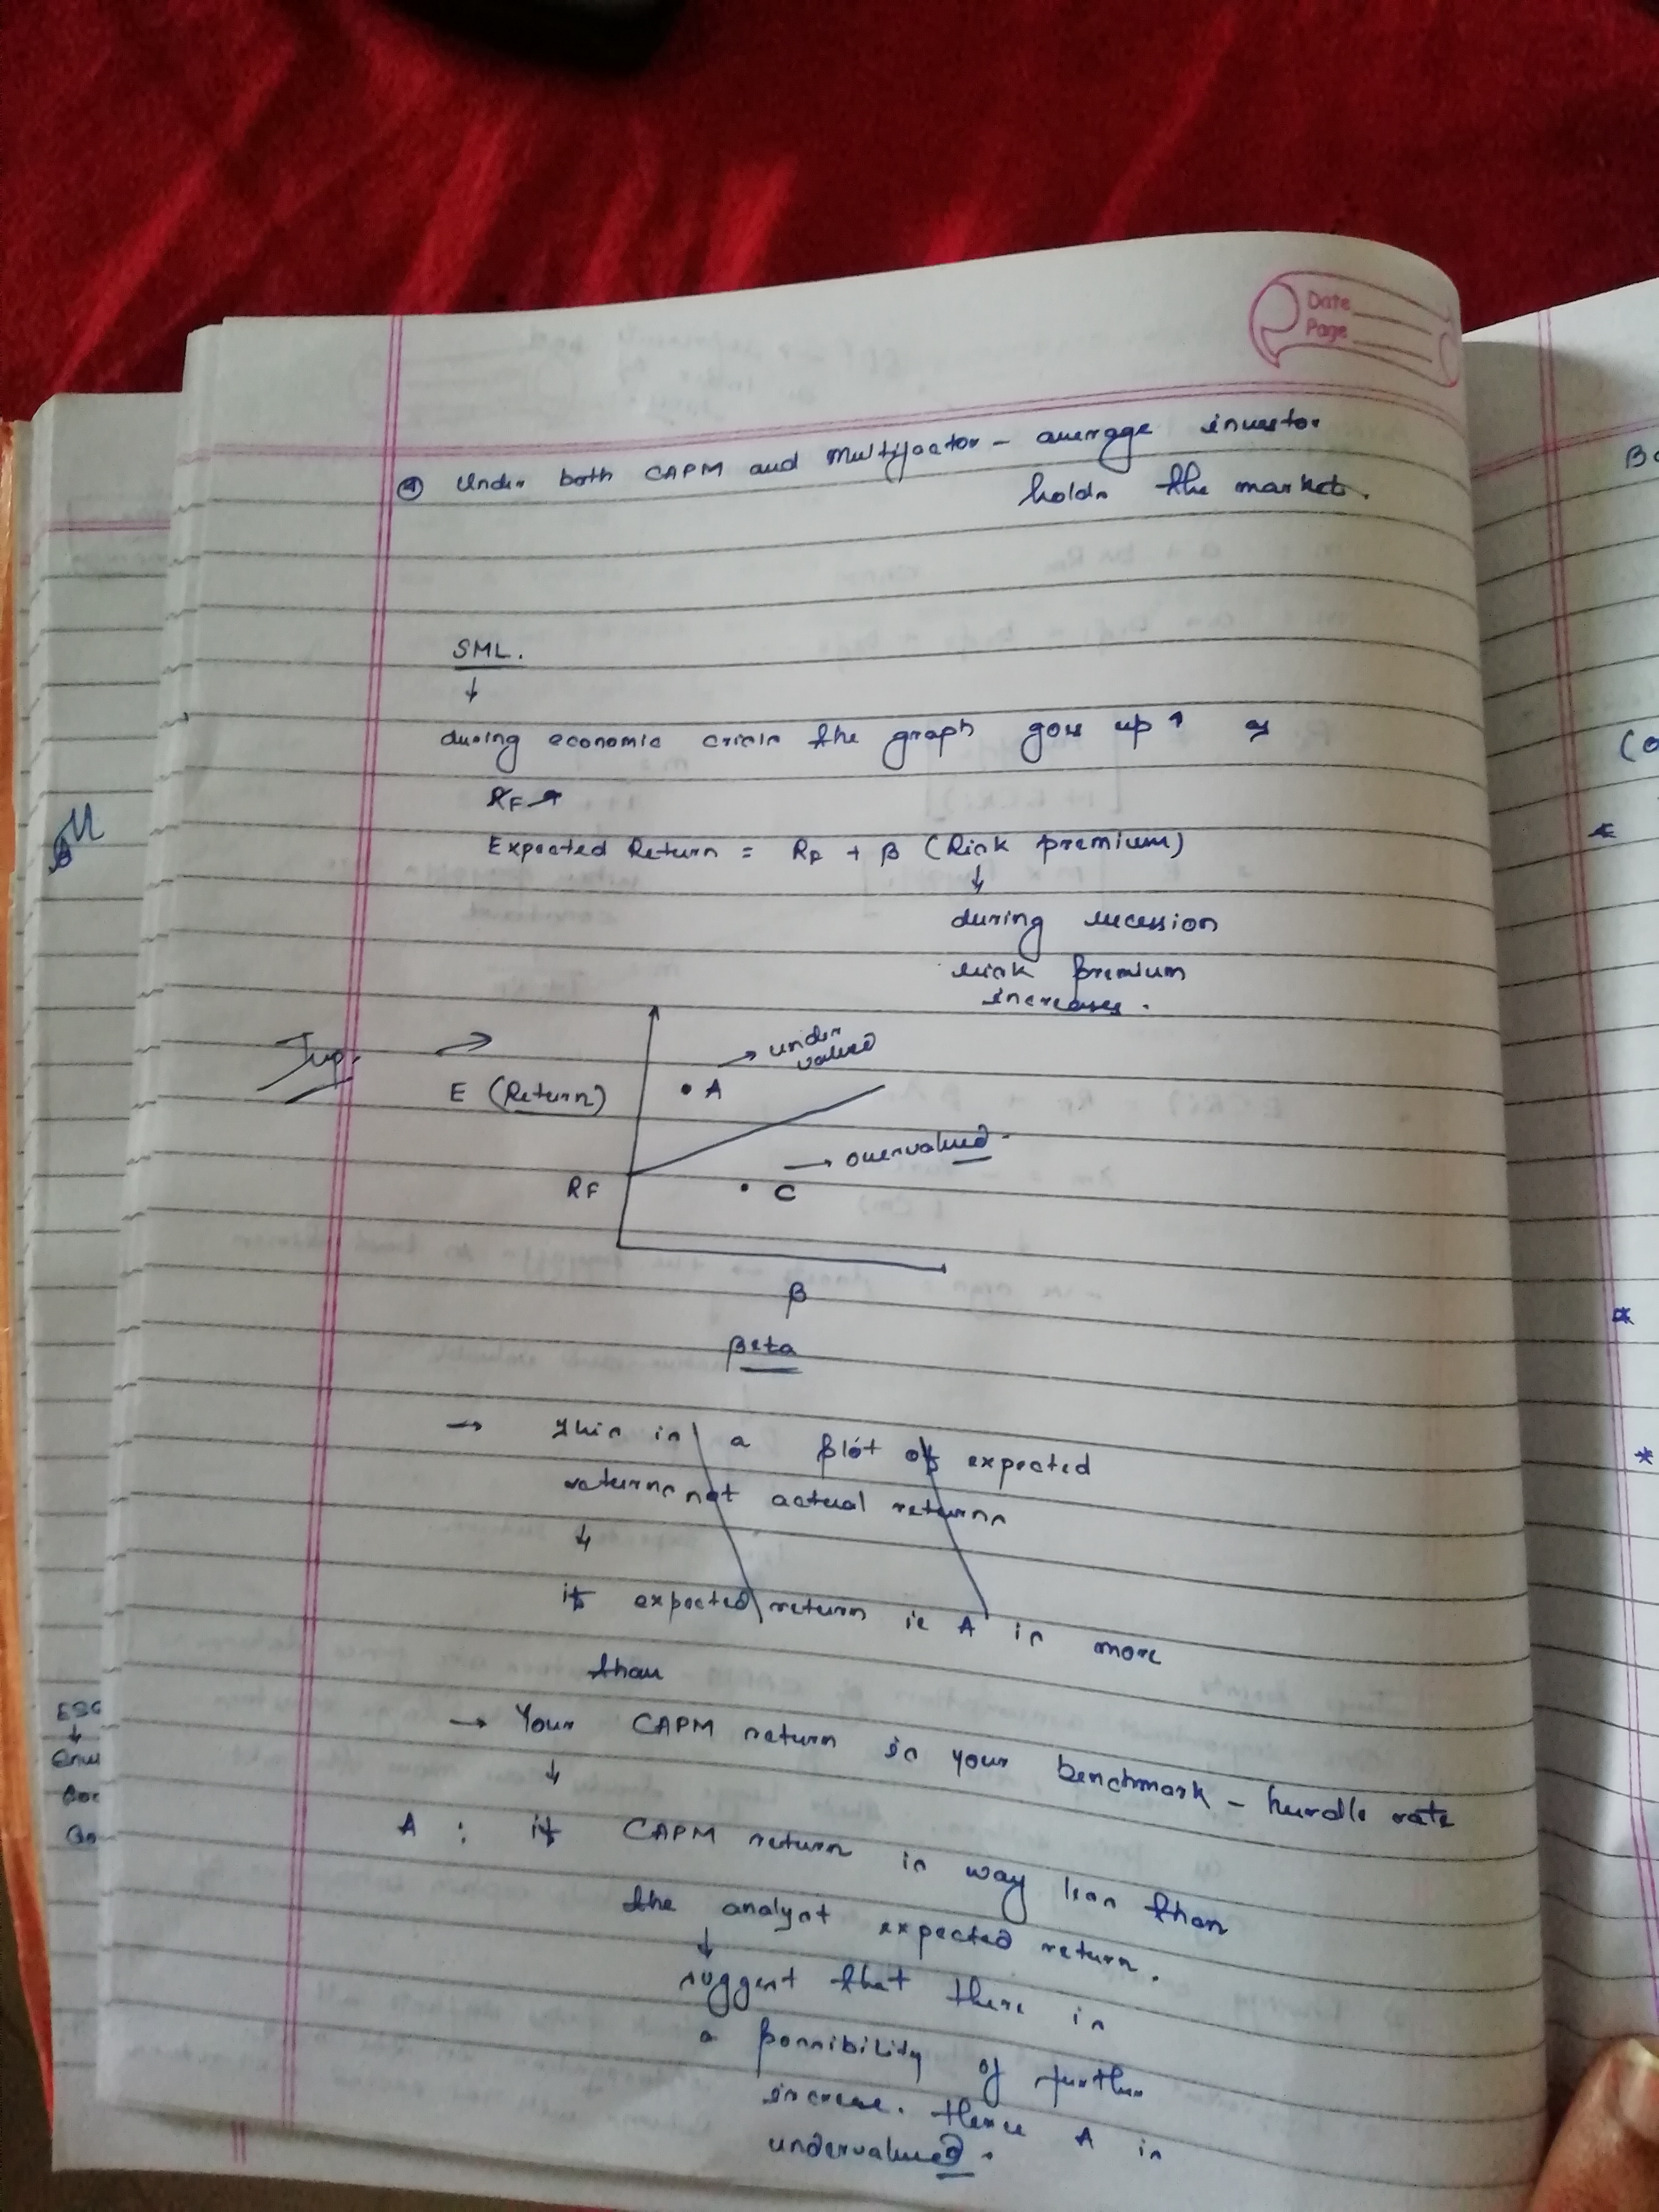 Date
Page
④ Under both CAPM and Multifactor - average investor
holds the market.
SML.
↓
during economic crisis the graph goes up ↑ as
RF ↑
Expected Return = RF + β (Risk premium)
↓
during recession
risk premium
increases.
Imp.
→ under
valued
• A
E (Return)
→ overvalued.
RF
• C
β
Beta
→ This is a plot of expected
returns not actual returns
↓
if expected return ie A is more
than
→ Your CAPM return is your benchmark - hurdle rate
↓
A : if CAPM return is way less than
the analyst expected return.
↓
suggest that there is
a possibility of further
increase. Hence A is
undervalued.
ESG
↓
B
*
*